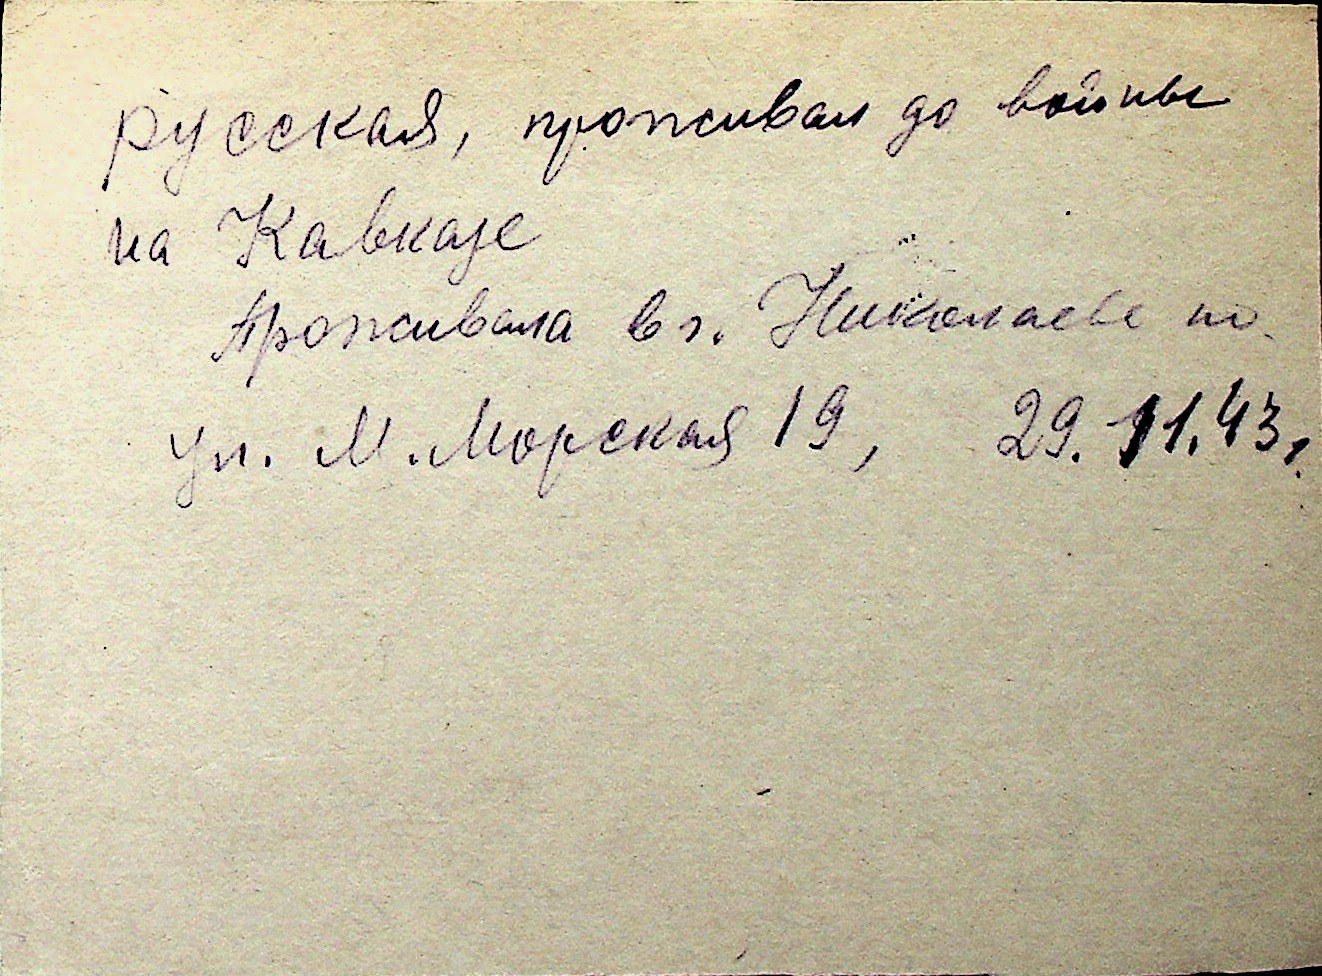 русская, проживал до войны
на Кавказе
Проживала в г. Николаеве по
ул. М. Морская 19, 29.11.43 г.